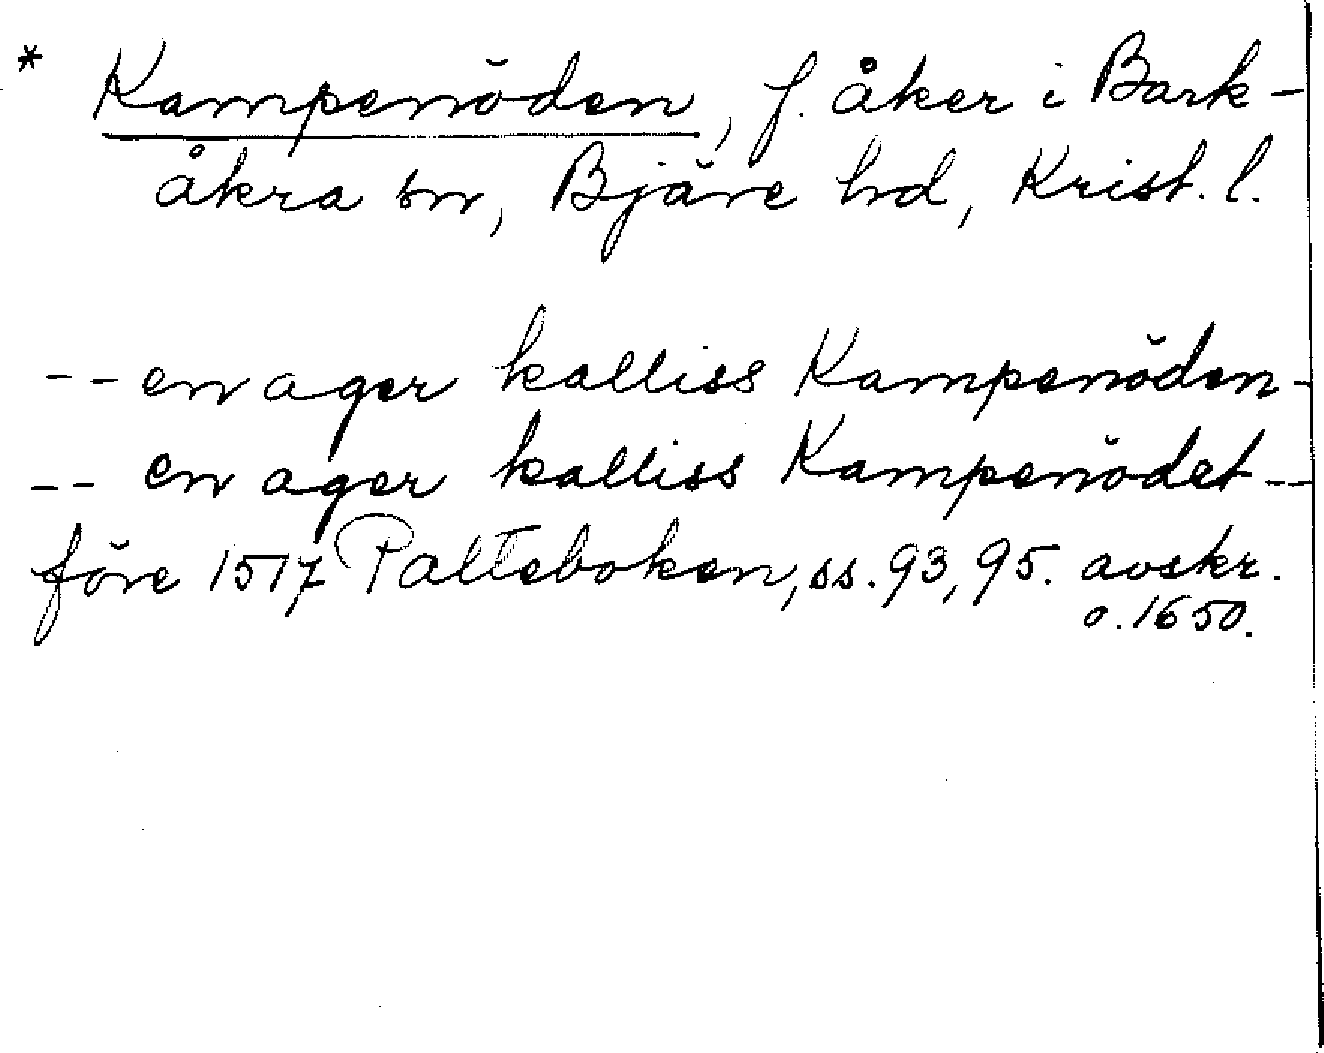 * Kamperöden, f. åker i Bark-
åkra sn, Bjäre hd, Krist. l.
-- en ager kalliss Kamperöden -
-- en ager kalliss Kamperödet --
före 1517 Palteboken, ss. 93, 95. avskr.
o. 1650.